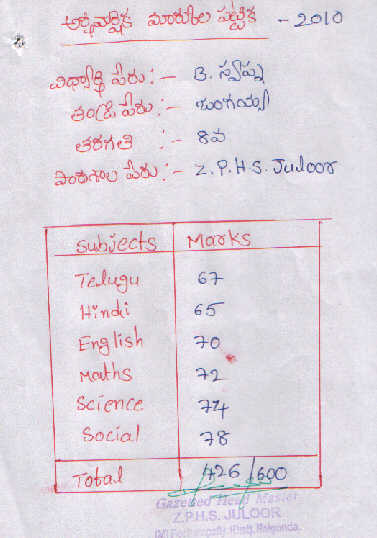 అర్థవార్షిక మార్కుల పట్టిక - 2010
విద్యార్థి పేరు :- B. స్వప్న
తండ్రి పేరు :- లింగయ్య
తరగతి :- 8వ
పాఠశాల పేరు :- Z.P.H.S. Juloor
Subjects Marks
Telugu 67
Hindi 65
English 70
Maths 72
Science 74
Social 78
Total 426/600
Gazetted Head Master
Z.P.H.S. JULOOR